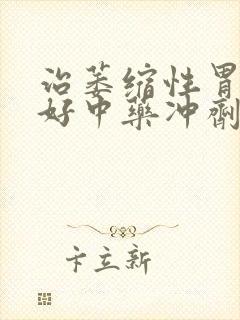 治萎缩性胃
好中药冲剂
卞立新